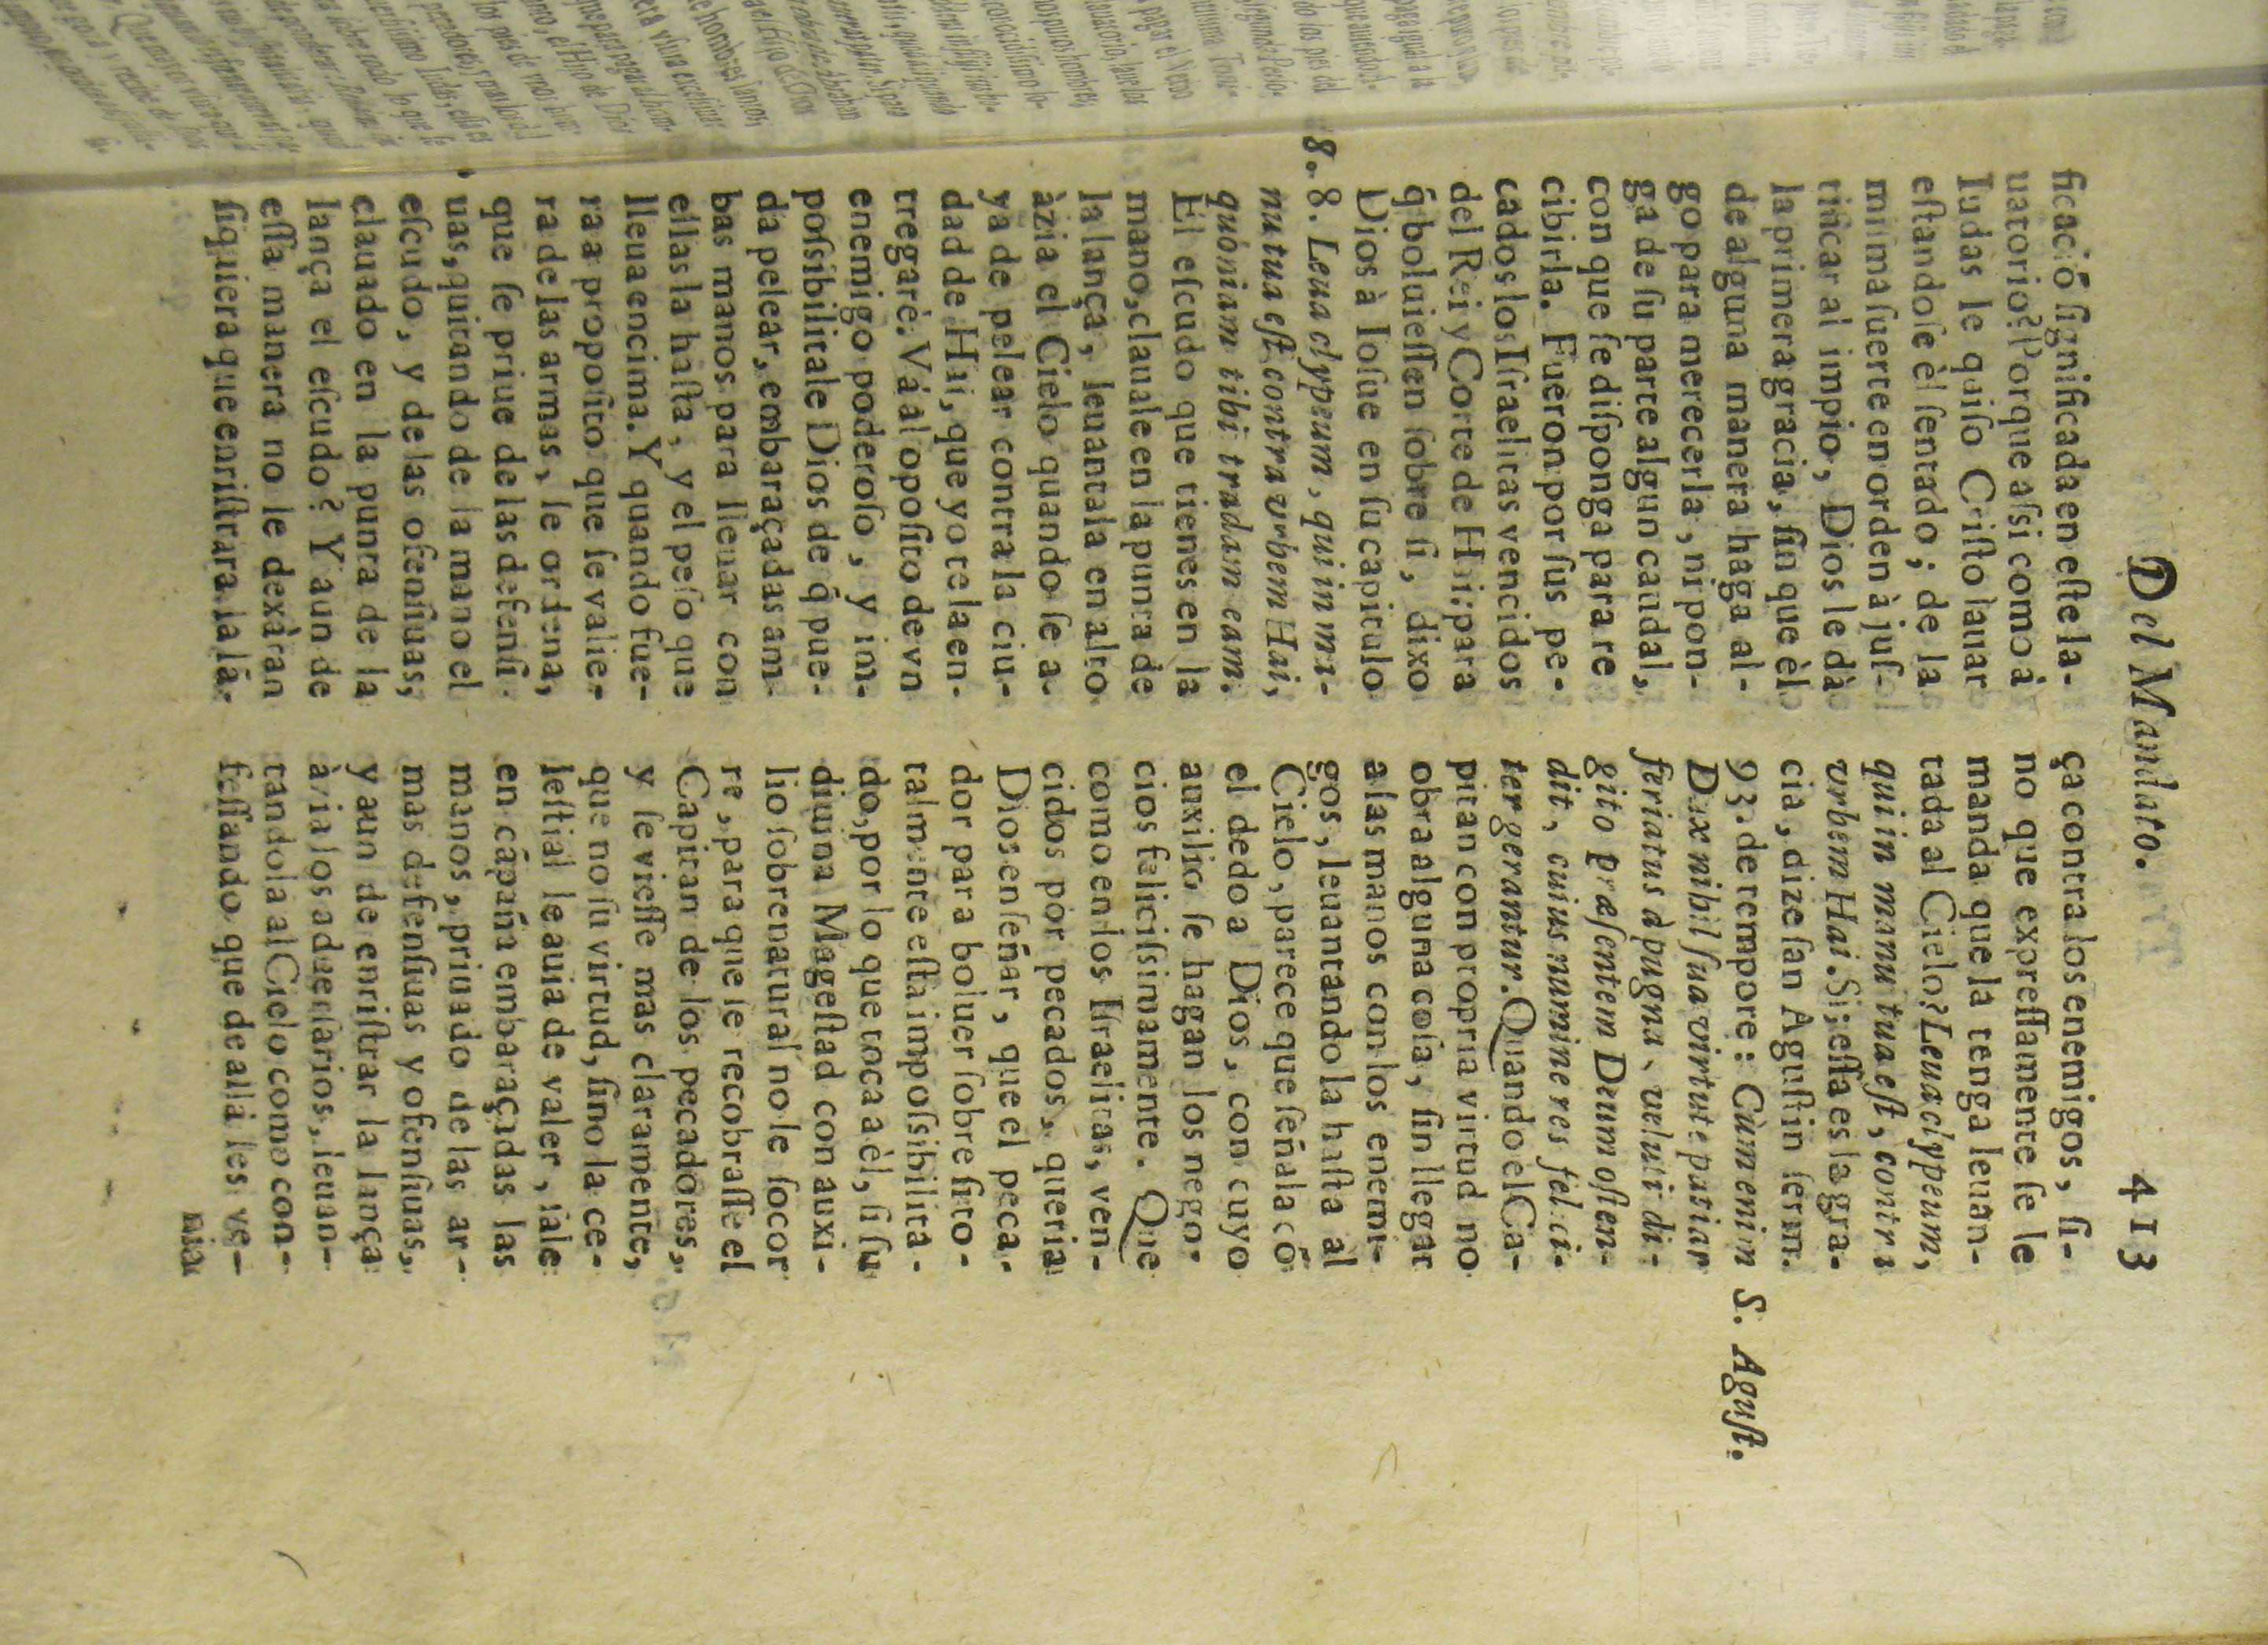 Del Mandato. 413
ficaciõ significada en este la-
uatorio? Porque assi como à
Iudas le quiso Cristo lauar
estandose èl sentado; de la
misma suerte en orden à jus-
tificar al impio, Dios le dà
la primera gracia, sin que èl
de alguna manera haga al-
go para merecerla, ni pon-
ga de su parte algun caudal,
con que se disponga para re
cibirla. Fueron por sus pe-
cados los Israelitas vencidos
del Rei y Corte de Hai: para
q̃ boluiessen sobre si, dixo
Dios à Iosue en su capitulo
8. 8. Leua clypeum, qui in ma-
nu tua est contra vrbem Hai,
quoniam tibi tradam eam.
El escudo que tienes en la
mano, clauale en la punta de
la lança, leuantala en alto
àzia el Cielo quando se a-
ya de pelear contra la ciu-
dad de Hai, que yo te la en-
tregarè. Và al oposito de vn
enemigo poderoso, y im-
possibilitale Dios de q̃ pue-
da pelear, embaraçadas am-
bas manos para lleuar con
ellas la hasta, y el peso que
lleua encima. Y quando fue-
ra a proposito que se valie-
ra de las armas, le ordena,
que se priue de las defensi-
uas, quitando de la mano el
escudo, y de las ofensiuas,
clauado en la punta de la
lança el escudo? Y aun de
essa manera no le dexàran
siquiera que enristrara la lã-
ça contra los enemigos, si-
no que expressamente se le
manda que la tenga leuan-
tada al Cielo? Leua clypeum,
qui in manu tua est, contra
vrbem Hai. Si; essa es la gra-
cia, dize san Agustin serm.
93. de tempore: Cùm enim S. Agust.
Dux nihil sua virtute patiar
feriatus à pugna, veluti di-
gito præsentem Deum osten-
dit, cuius numine res felici-
ter gerantur. Quando el Ca-
pitan con propria virtud no
obra alguna cosa, sin llegar
a las manos con los enemi-
gos, leuantando la hasta al
Cielo, parece que señala cõ
el dedo a Dios, con cuyo
auxilio se hagan los nego-
cios felicissimamente. Que
como en los Israelitas, ven-
cidos por pecados, queria
Dios enseñar, que el peca-
dor para boluer sobre si to-
talmente està impossibilita-
do, por lo que toca a èl, si su
diuina Magestad con auxi-
lio sobrenatural no le socor
re, para que le recobrasse el
Capitan de los pecadores,
y se viesse mas claramente,
que no su virtud, sino la ce-
lestial le auia de valer, sale
en cãpaña embaraçadas las
manos, priuado de las ar-
mas defensiuas y ofensiuas,
y aun de enristrar la lança
àzia los aduersarios, leuan-
tandola al Cielo como con-
fessando que de allà les ve-
nia